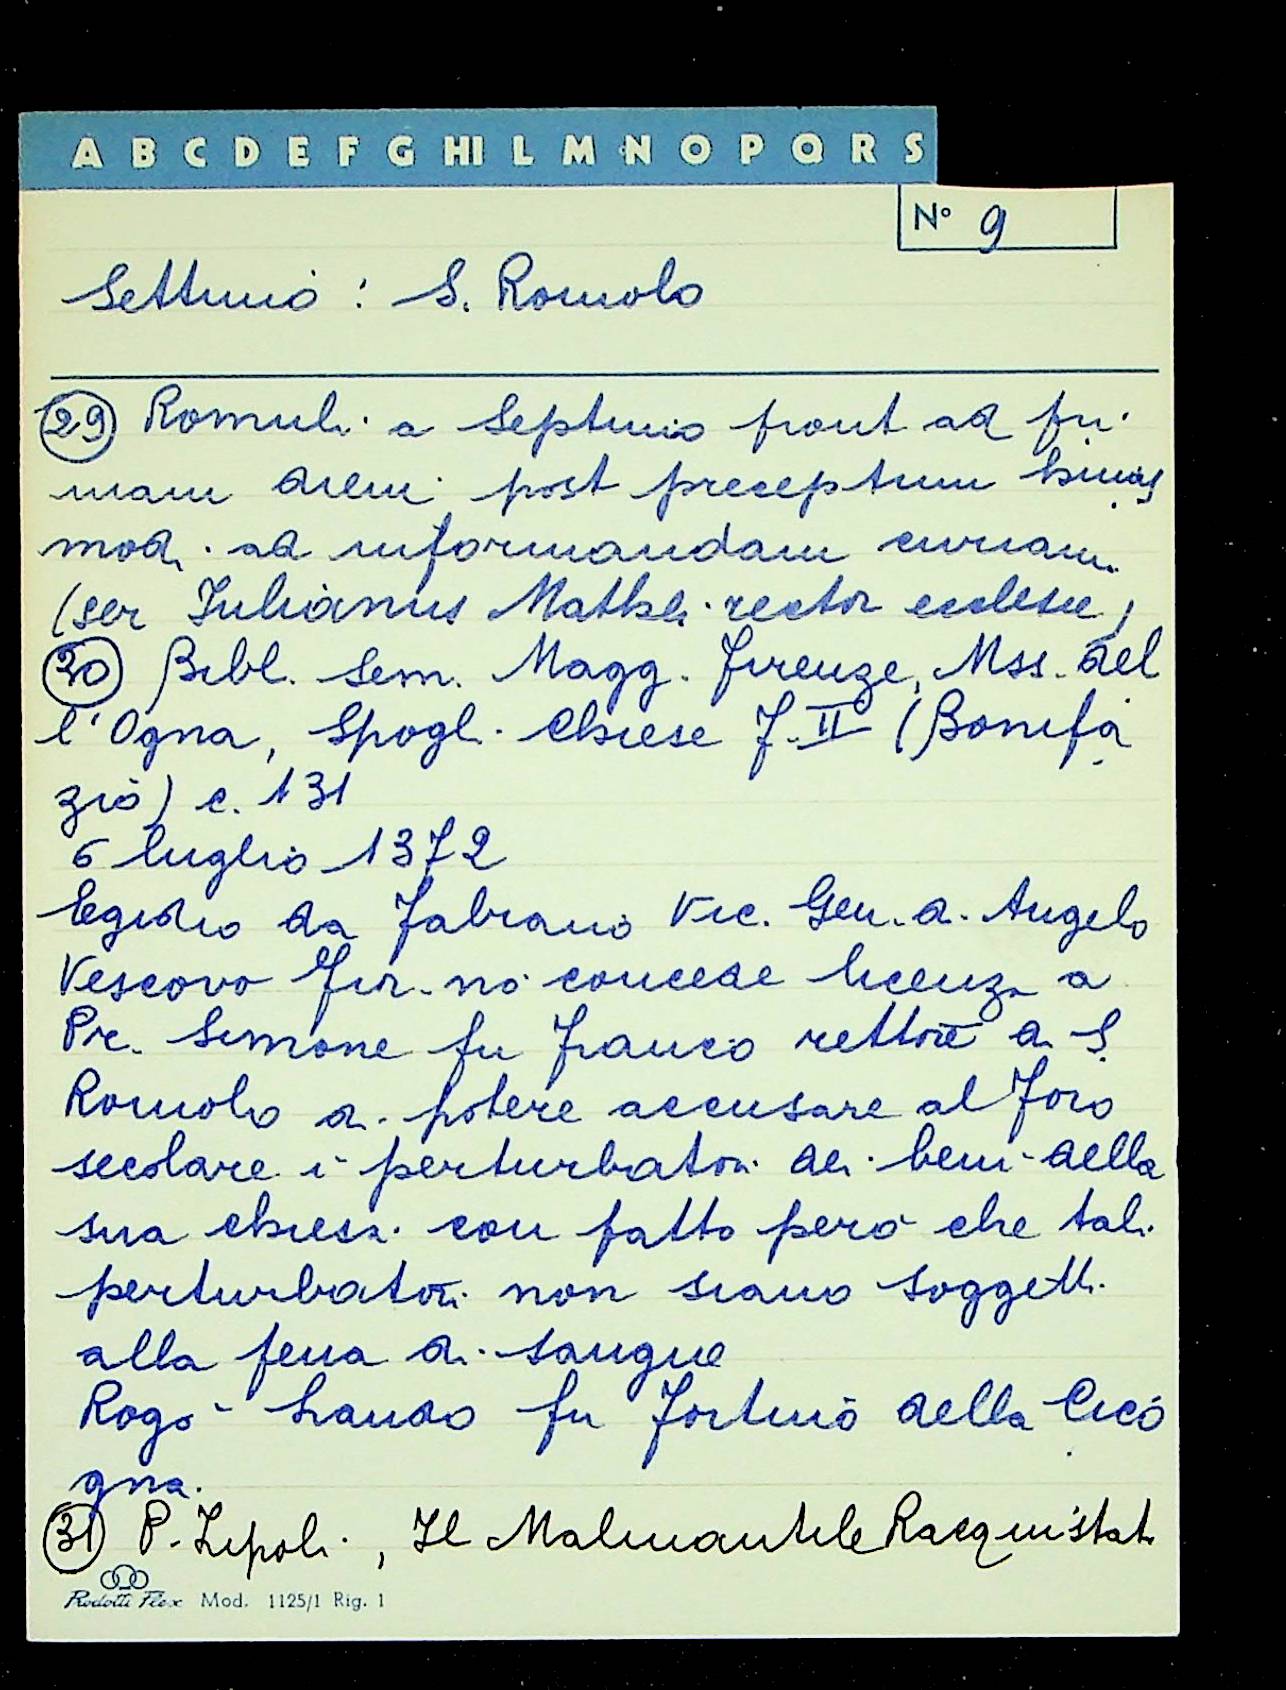 A B C D E F G HI L M N O P Q R S
N° 9
Settimo : S. Romolo
(29) Romuli a Septimo prout ad pri
mam diem post preceptum binas
mod. ad informandam curiam.
(ser Iulianus Mathei rector ecclesie)
(30) Bibl. Sem. Magg. Firenze, Mss. del
l'Ogna, Spogl. Chiese F. II (Bonifa
zio) c. 131
6 luglio 1372
Egidio da Fabriano Vic. Gen. d. Angelo
Vescovo Fior.no concede licenza a
Pr. Simone fu Franco rettore di S.
Romolo di potere accusare al Foro
secolare i perturbatori dei beni della
sua chiesa con patto però che tali
perturbatori non siano soggetti
alla pena di sangue
Rogò fu Fortino della Cico
gna.
(31) P. Lipoli, Il Malmantile Racquistat
Rodotti Flex Mod. 1125/1 Rig. 1